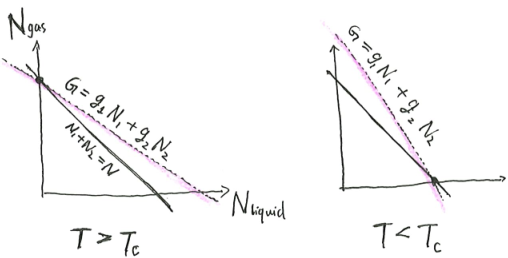 N gas
G = g₁N₁ + g₂N₂
N₁+N₂=N
N liquid
T > Tc
G = g₁N₁ + g₂N₂
T < Tc